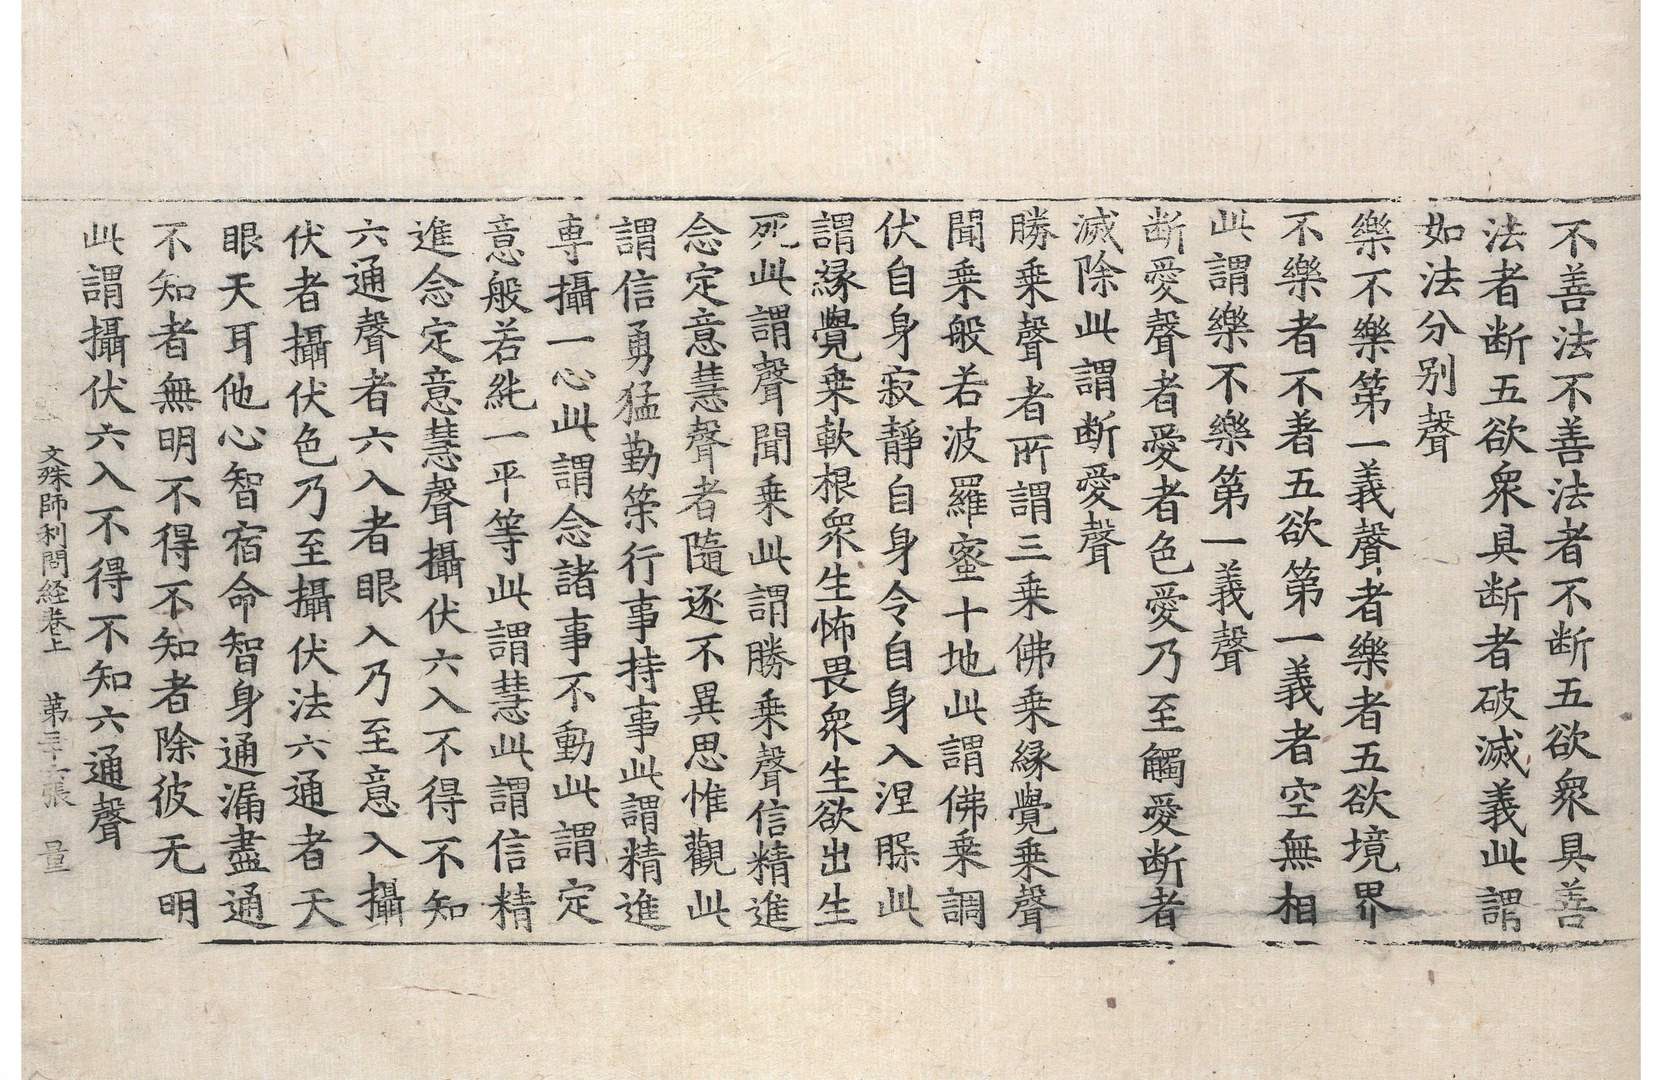 不善法不善法者不断五欲衆具善
法者断五欲衆具断者破滅義此謂
如法分别聲
樂不樂第一義聲者樂者五欲境界
不樂者不著五欲第一義者空無相
此謂樂不樂第一義聲
断愛聲者愛者色愛乃至觸愛断者
滅除此謂断愛聲
勝乗聲者所謂三乗佛乗縁覺乗聲
聞乗般若波羅蜜十地此謂佛乗調
伏自身寂靜自身令自身入涅槃此
謂縁覺乗軟根衆生怖畏衆生欲出生
死此謂聲聞乗此謂勝乗聲信精進
念定意慧聲者隨逐不異思惟觀此
謂信勇猛勤策行事持事此謂精進
専攝一心此謂念諸事不動此謂定
意般若純一平等此謂慧此謂信精
進念定意慧聲攝伏六入不得不知
六通聲者六入者眼入乃至意入攝
伏者攝伏色乃至攝伏法六通者天
眼天耳他心智宿命智身通漏盡通
不知者無明不得不知者除彼无明
此謂攝伏六入不得不知六通聲
文殊師利問経卷上 第 張 量